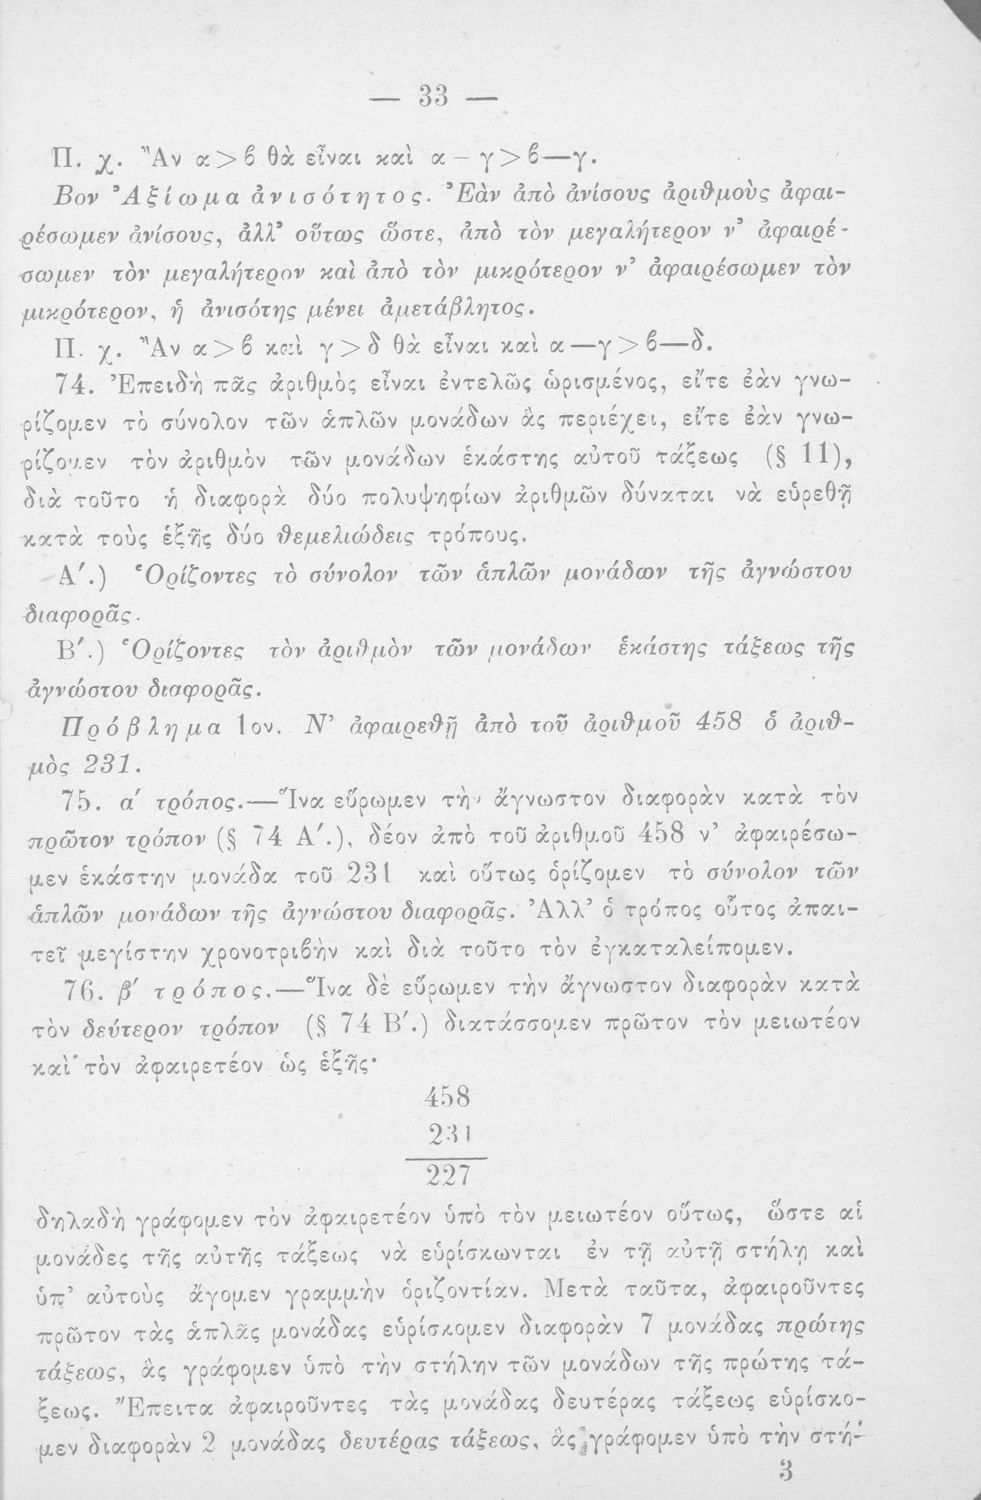 — 33 —
Π. χ. Ἂν α>β θὰ εἶναι καὶ α – γ>β—γ.
Βον Ἀξίωμα ἀνισότητος. Ἐὰν ἀπὸ ἀνίσους ἀριθμοὺς ἀφαι-
ρέσωμεν ἀνίσους, ἀλλ’ οὕτως ὥστε, ἀπὸ τὸν μεγαλήτερον ν’ ἀφαιρέ-
σωμεν τὸν μεγαλήτερον καὶ ἀπὸ τὸν μικρότερον ν’ ἀφαιρέσωμεν τὸν
μικρότερον, ἡ ἀνισότης μένει ἀμετάβλητος.
Π. χ. Ἂν α>β καὶ γ>δ θὰ εἶναι καὶ α—γ>β—δ.
74. Ἐπειδὴ πᾶς ἀριθμὸς εἶναι ἐντελῶς ὡρισμένος, εἴτε ἐὰν γνω-
ρίζομεν τὸ σύνολον τῶν ἁπλῶν μονάδων ἃς περιέχει, εἴτε ἐὰν γνω-
ρίζομεν τὸν ἀριθμὸν τῶν μονάδων ἑκάστης αὐτοῦ τάξεως (§ 11),
διὰ τοῦτο ἡ διαφορὰ δύο πολυψηφίων ἀριθμῶν δύναται νὰ εὑρεθῇ
κατὰ τοὺς ἑξῆς δύο θεμελιώδεις τρόπους.
Α΄.) Ὁρίζοντες τὸ σύνολον τῶν ἁπλῶν μονάδων τῆς ἀγνώστου
διαφορᾶς.
Β΄.) Ὁρίζοντες τὸν ἀριθμὸν τῶν μονάδων ἑκάστης τάξεως τῆς
ἀγνώστου διαφορᾶς.
Πρόβλημα 1ον. Ν’ ἀφαιρεθῇ ἀπὸ τοῦ ἀριθμοῦ 458 ὁ ἀριθ-
μὸς 231.
75. α΄ τρόπος.—Ἵνα εὕρωμεν τὴν ἄγνωστον διαφορὰν κατὰ τὸν
πρῶτον τρόπον (§ 74 Α΄.), δέον ἀπὸ τοῦ ἀριθμοῦ 458 ν’ ἀφαιρέσω-
μεν ἑκάστην μονάδα τοῦ 231 καὶ οὕτως ὁρίζομεν τὸ σύνολον τῶν
ἁπλῶν μονάδων τῆς ἀγνώστου διαφορᾶς. Ἀλλ’ ὁ τρόπος οὗτος ἀπαι-
τεῖ μεγίστην χρονοτριβὴν καὶ διὰ τοῦτο τὸν ἐγκαταλείπομεν.
76. β΄ τρόπος.—Ἵνα δὲ εὕρωμεν τὴν ἄγνωστον διαφορὰν κατὰ
τὸν δεύτερον τρόπον (§ 74 Β΄.) διατάσσομεν πρῶτον τὸν μειωτέον
καὶ τὸν ἀφαιρετέον ὡς ἑξῆς·
458
231
227
δηλαδὴ γράφομεν τὸν ἀφαιρετέον ὑπὸ τὸν μειωτέον οὕτως, ὥστε αἱ
μονάδες τῆς αὐτῆς τάξεως νὰ εὑρίσκωνται ἐν τῇ αὐτῇ στήλῃ καὶ
ὑπ’ αὐτοὺς ἄγομεν γραμμὴν ὁριζοντίαν. Μετὰ ταῦτα, ἀφαιροῦντες
πρῶτον τὰς ἁπλᾶς μονάδας εὑρίσκομεν διαφορὰν 7 μονάδας πρώτης
τάξεως, ἃς γράφομεν ὑπὸ τὴν στήλην τῶν μονάδων τῆς πρώτης τά-
ξεως. Ἔπειτα ἀφαιροῦντες τὰς μονάδας δευτέρας τάξεως εὑρίσκο-
μεν διαφορὰν 2 μονάδας δευτέρας τάξεως, ἃς γράφομεν ὑπὸ τὴν στή-
3